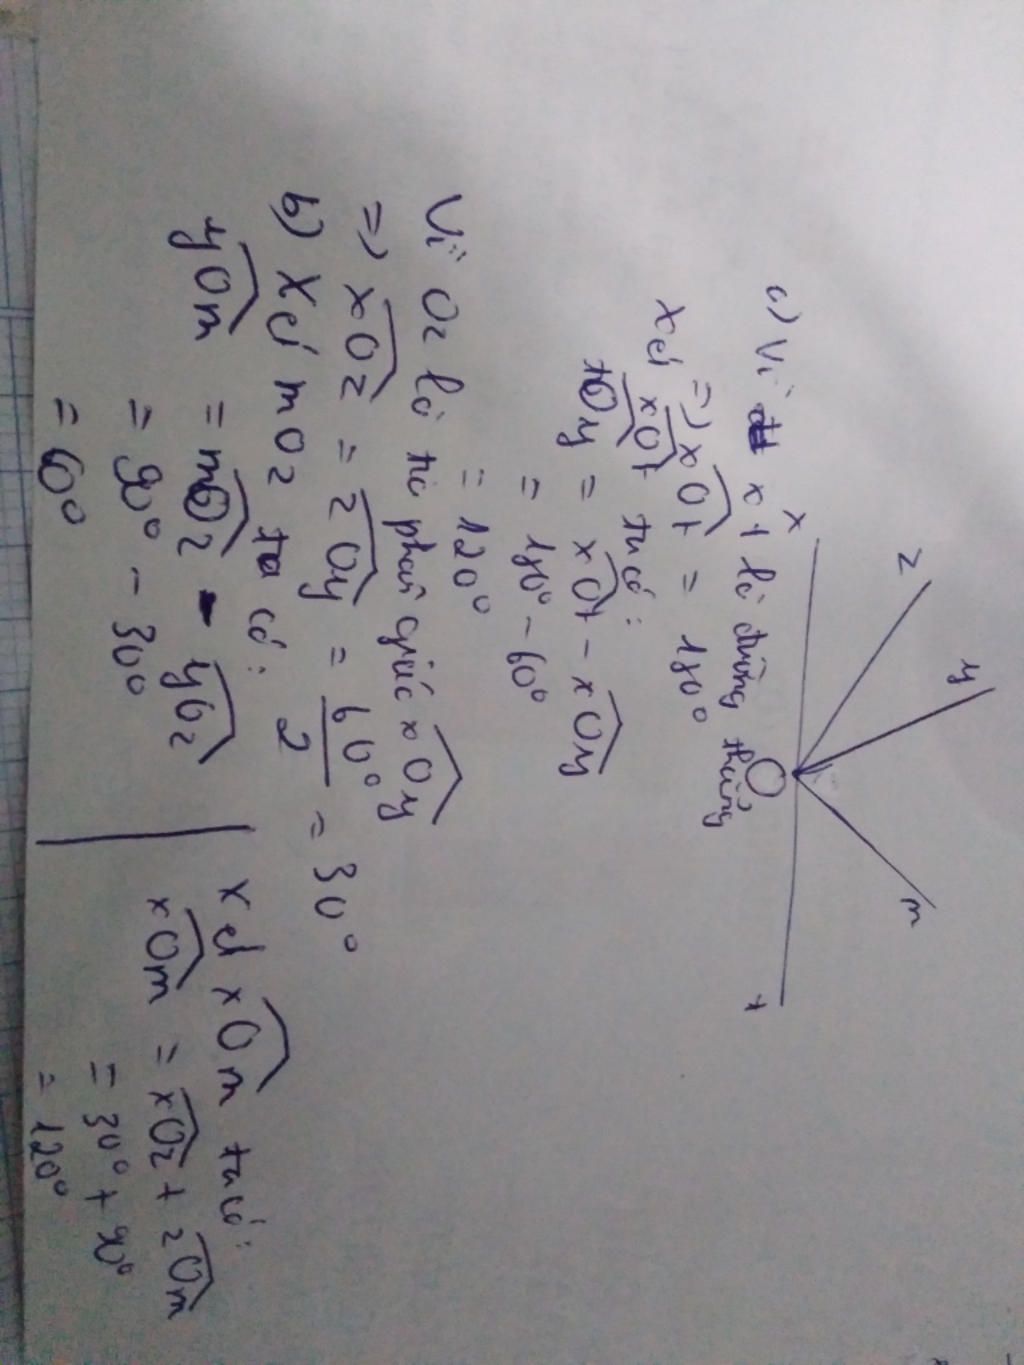 x
z
y
m
t
O
a) Vì xt là đường thẳng
=> xOt = 180°
xét xOt ta có:
tOy = xOt - xOy
= 180° - 60°
= 120°
Vì Oz là tia phân giác xOy
=> xOz = zOy = 60° / 2 = 30°
b) Xét mOz ta có:
yOm = mOz - yOz
= 90° - 30°
= 60°
xét xOm ta có:
xOm = xOz + zOm
= 30° + 90°
= 120°